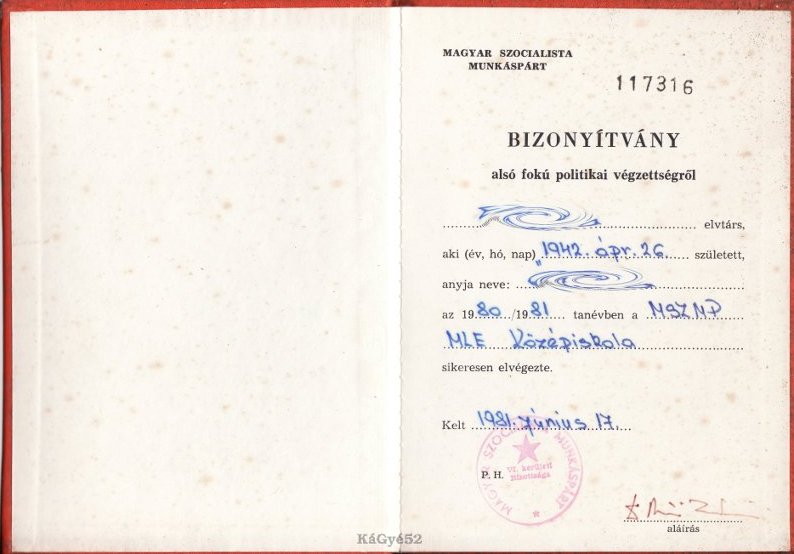 MAGYAR SZOCIALISTA
MUNKÁSPÁRT
117316
BIZONYÍTVÁNY
alsó fokú politikai végzettségről
elvtárs,
aki (év, hó, nap) 1942. ápr. 26. született,
anyja neve:
az 1980/1981 tanévben a MSZMP
MLE Középiskola
sikeresen elvégezte.
Kelt 1981. június 17.
MAGYAR SZOCIALISTA MUNKÁSPÁRT
VI. kerületi
Bizottsága
P. H.
aláírás
KáGyé52